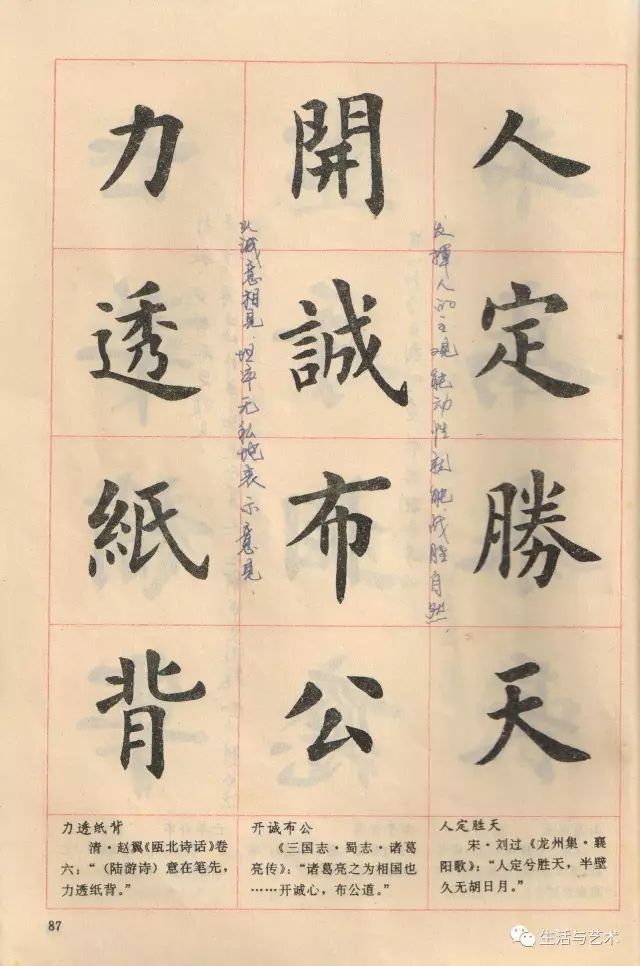 人定勝天
发挥人的主观能动性就能战胜自然.
開誠布公
以诚意相见.坦率无私地表示意见.
力透紙背
力透纸背
清·赵翼《瓯北诗话》卷
六：“（陆游诗）意在笔先，
力透纸背。”
开诚布公
《三国志·蜀志·诸葛
亮传》：“诸葛亮之为相国也
……开诚心，布公道。”
人定胜天
宋·刘过《龙州集·襄
阳歌》：“人定兮胜天，半壁
久无胡日月。”
87
生活与艺术